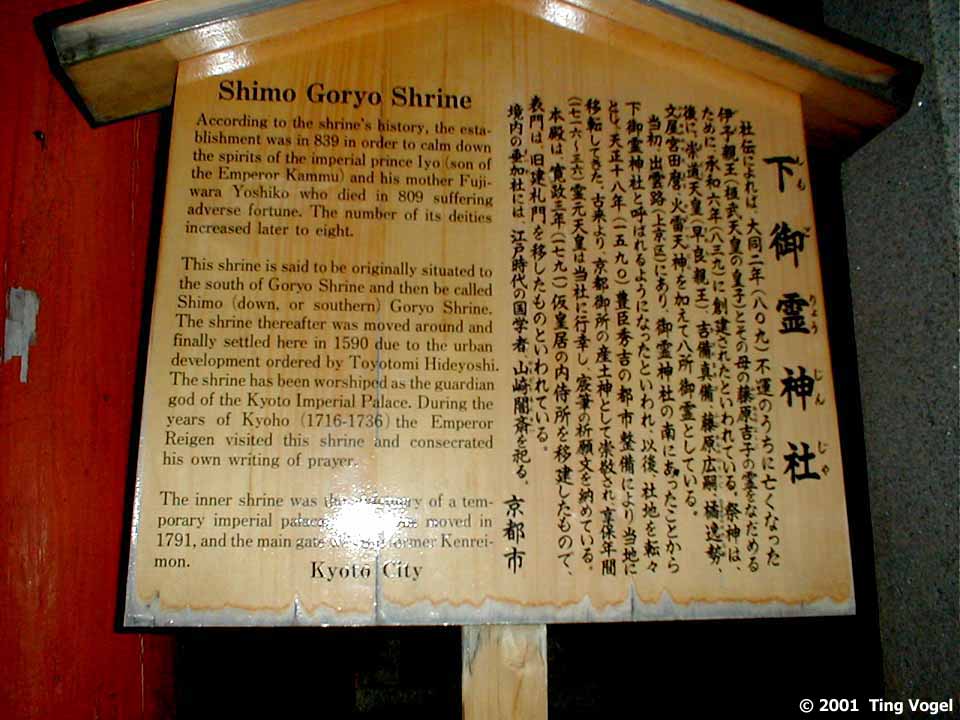 Shimo Goryo Shrine
According to the shrine's history, the esta-
blishment was in 839 in order to calm down
the spirits of the imperial prince Iyo (son of
the Emperor Kammu) and his mother Fuji-
wara Yoshiko who died in 809 suffering
adverse fortune. The number of its deities
increased later to eight.
This shrine is said to be originally situated to
the south of Goryo Shrine and then be called
Shimo (down, or southern) Goryo Shrine.
The shrine thereafter was moved around and
finally settled here in 1590 due to the urban
development ordered by Toyotomi Hideyoshi.
The shrine has been worshiped as the guardian
god of the Kyoto Imperial Palace. During the
years of Kyoho (1716-1736) the Emperor
Reigen visited this shrine and consecrated
his own writing of prayer.
The inner shrine was the of a tem-
porary imperial palace moved in
1791, and the main gate former Kenrei-
mon.
Kyoto City
下御霊神社
しも ご りょう じん じゃ
社伝によれば、大同二年(八〇九)不運のうちに亡くなった
伊予親王(桓武天皇の皇子)とその母の藤原吉子の霊をなだめる
ために、承和六年(八三九)に創建されたといわれている。祭神は、
後に、崇道天皇(早良親王)、吉備真備、藤原広嗣、橘逸勢、
文屋宮田麿、火雷天神を加えて八所御霊としている。
当初、出雲路(上京区)にあり、御霊神社の南にあったことから
下御霊神社と呼ばれるようになったといわれ、以後、社地を転々
とし、天正十八年(一五九〇)豊臣秀吉の都市整備により当地に
移転してきた。古来より、京都御所の産土神として崇敬され、享保年間
(一七一六〜三六)霊元天皇は当社に行幸し、宸筆の祈願文を納めている。
本殿は、寛政三年(一七九一)仮皇居の内侍所を移建したもので、
表門は、旧建礼門を移したものといわれている。
境内の垂加社には、江戸時代の国学者、山崎闇斎を祀る。
京都市
© 2001 Ting Vogel